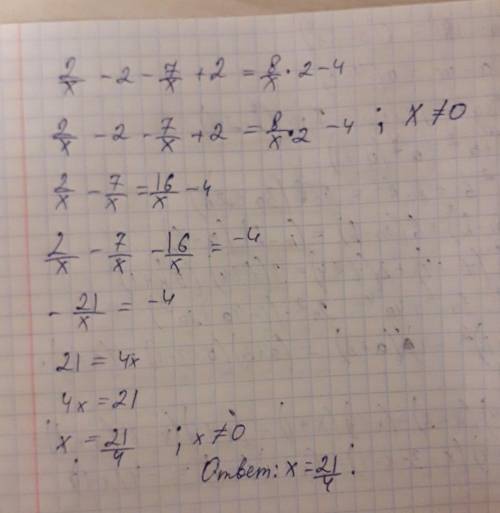 2/x - 2 - 7/x + 2 = 8/x · 2 - 4
2/x - 2 - 7/x + 2 = 8/x · 2 - 4 ; x ≠ 0
2/x - 7/x = 16/x - 4
2/x - 7/x - 16/x = -4
- 21/x = -4
21 = 4x
4x = 21
x = 21/4 ; x ≠ 0
Ответ: x = 21/4.